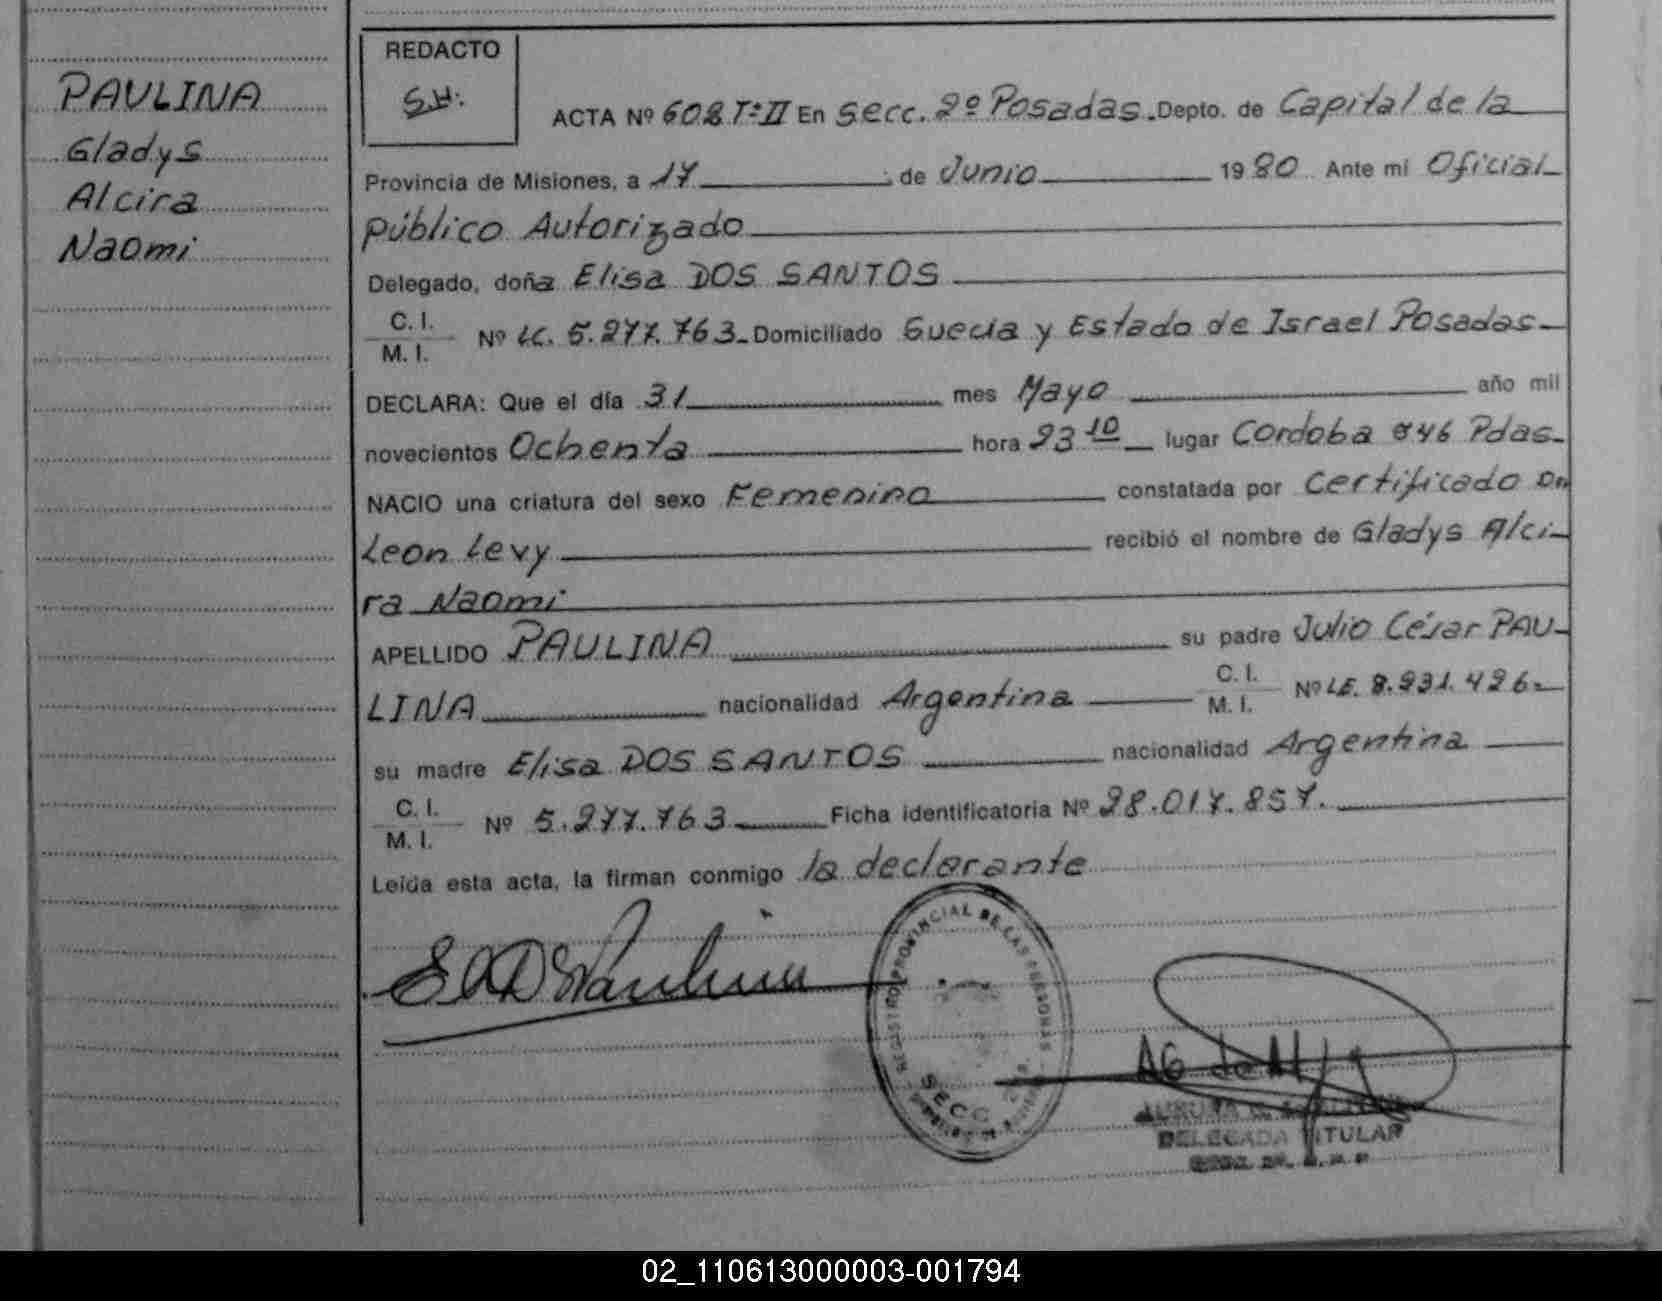 PAULINA
Gladys
Alcira
Naomi
REDACTO
S.H.
ACTA Nº 602 Tº II En secc. 2º Posadas. Depto. de Capital de la
Provincia de Misiones, a 17 de Junio 1980 Ante mi Oficial
público Autorizado
Delegado, doña Elisa DOS SANTOS
C. I.
M. I. Nº LC. 5.277.763. Domiciliado Suecia y Estado de Israel Posadas
DECLARA: Que el día 31 mes Mayo año mil
novecientos Ochenta hora 23 10 lugar Cordoba 846 Pdas.
NACIO una criatura del sexo Femenino constatada por Certificado Dr
Leon Levy recibió el nombre de Gladys Alci-
ra Naomi
APELLIDO PAULINA su padre Julio César PAU-
LINA nacionalidad Argentina C. I.
M. I. Nº LE. 8.231.426.
su madre Elisa DOS SANTOS nacionalidad Argentina
C. I.
M. I. Nº 5.277.763 Ficha identificatoria Nº 28.017.857.
Leída esta acta, la firman conmigo la declarante
REGISTRO PROVINCIAL DE LAS PERSONAS
SECC 2da.
DELEGADA TITULAR
02_110613000003-001794